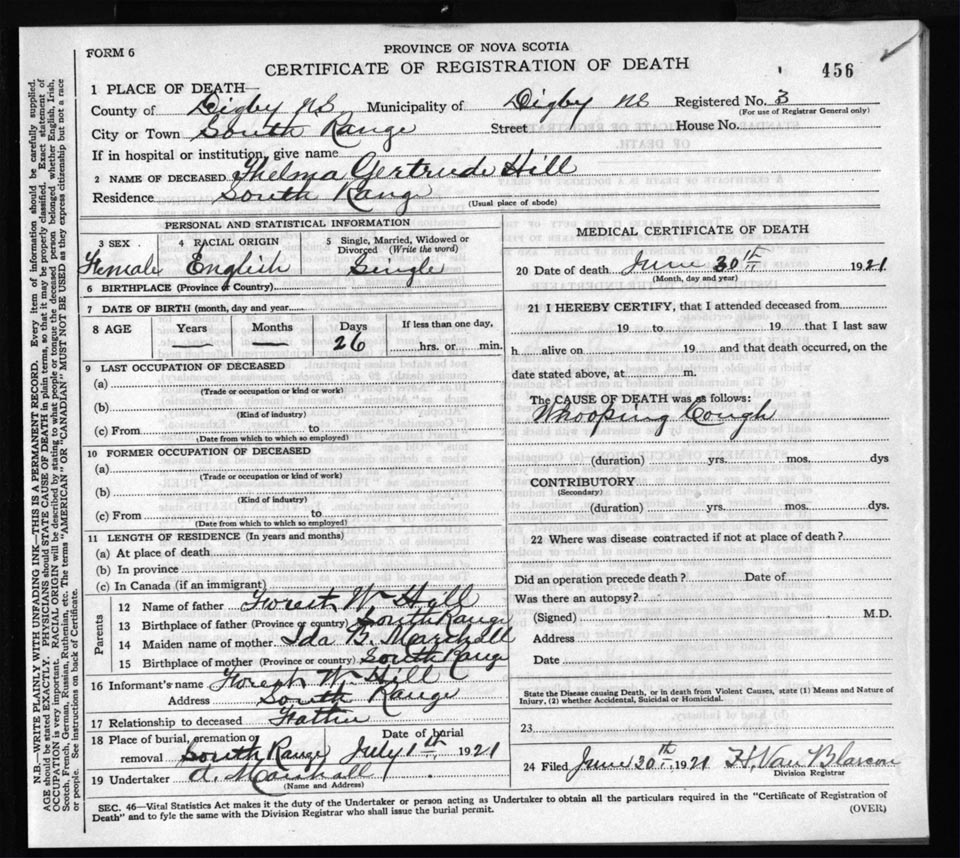 FORM 6
PROVINCE OF NOVA SCOTIA
CERTIFICATE OF REGISTRATION OF DEATH
456
1 PLACE OF DEATH—
County of Digby NS Municipality of Digby NS Registered No. 3
(For use of Registrar General only)
City or Town South Range Street House No.
If in hospital or institution, give name
2 NAME OF DECEASED Thelma Gertrude Hill
Residence South Range
(Usual place of abode)
PERSONAL AND STATISTICAL INFORMATION
3 SEX 4 RACIAL ORIGIN 5 Single, Married, Widowed or Divorced (Write the word)
Female English Single
6 BIRTHPLACE (Province or Country)
7 DATE OF BIRTH (month, day and year)
8 AGE Years Months Days If less than one day,
— — 26 hrs. or min.
9 LAST OCCUPATION OF DECEASED
(a)
(Trade or occupation or kind of work)
(b)
(Kind of industry)
(c) From to
(Date from which to which so employed)
10 FORMER OCCUPATION OF DECEASED
(a)
(Trade or occupation or kind of work)
(b)
(Kind of industry)
(c) From to
(Date from which to which so employed)
11 LENGTH OF RESIDENCE (In years and months)
(a) At place of death
(b) In province
(c) In Canada (if an immigrant)
Parents
12 Name of father Forest W. Hill
13 Birthplace of father (Province or country) South Range
14 Maiden name of mother Ida B. Marshall
15 Birthplace of mother (Province or country) South Range
16 Informant's name Forest W. Hill
Address South Range
17 Relationship to deceased Father
18 Place of burial, cremation or removal South Range Date of burial July 1th 1921
19 Undertaker A. Marshall
(Name and Address)
MEDICAL CERTIFICATE OF DEATH
20 Date of death June 30th 1921
(Month, day and year)
21 I HEREBY CERTIFY, that I attended deceased from
19 to 19 that I last saw
h alive on 19 and that death occurred, on the
date stated above, at m.
The CAUSE OF DEATH was as follows:
Whooping Cough
(duration) yrs. mos. dys
CONTRIBUTORY
(Secondary)
(duration) yrs. mos. dys.
22 Where was disease contracted if not at place of death?
Did an operation precede death? Date of
Was there an autopsy?
(Signed) M.D.
Address
Date
State the Disease causing Death, or in death from Violent Causes, state (1) Means and Nature of
Injury, (2) whether Accidental, Suicidal or Homicidal.
23
24 Filed June 30th 1921 H. Van Blarcom
Division Registrar
SEC. 46—Vital Statistics Act makes it the duty of the Undertaker or person acting as Undertaker to obtain all the particulars required in the "Certificate of Registration of
Death" and to fyle the same with the Division Registrar who shall issue the burial permit.
(OVER)
N.B.—WRITE PLAINLY WITH UNFADING INK—THIS IS A PERMANENT RECORD. Every item of information should be carefully supplied.
AGE should be stated EXACTLY. PHYSICIANS should STATE CAUSE OF DEATH in plain terms, so that it may be properly classified. Exact statement of
OCCUPATION is very important. RACIAL ORIGIN will be described by stating to what people or tongue the deceased person belonged whether English, Irish,
Scotch, French, German, Russian, Ruthenian, etc. The terms "AMERICAN" OR "CANADIAN" MUST NOT BE USED as they express citizenship but not a race
or people. See instructions on back of Certificate.